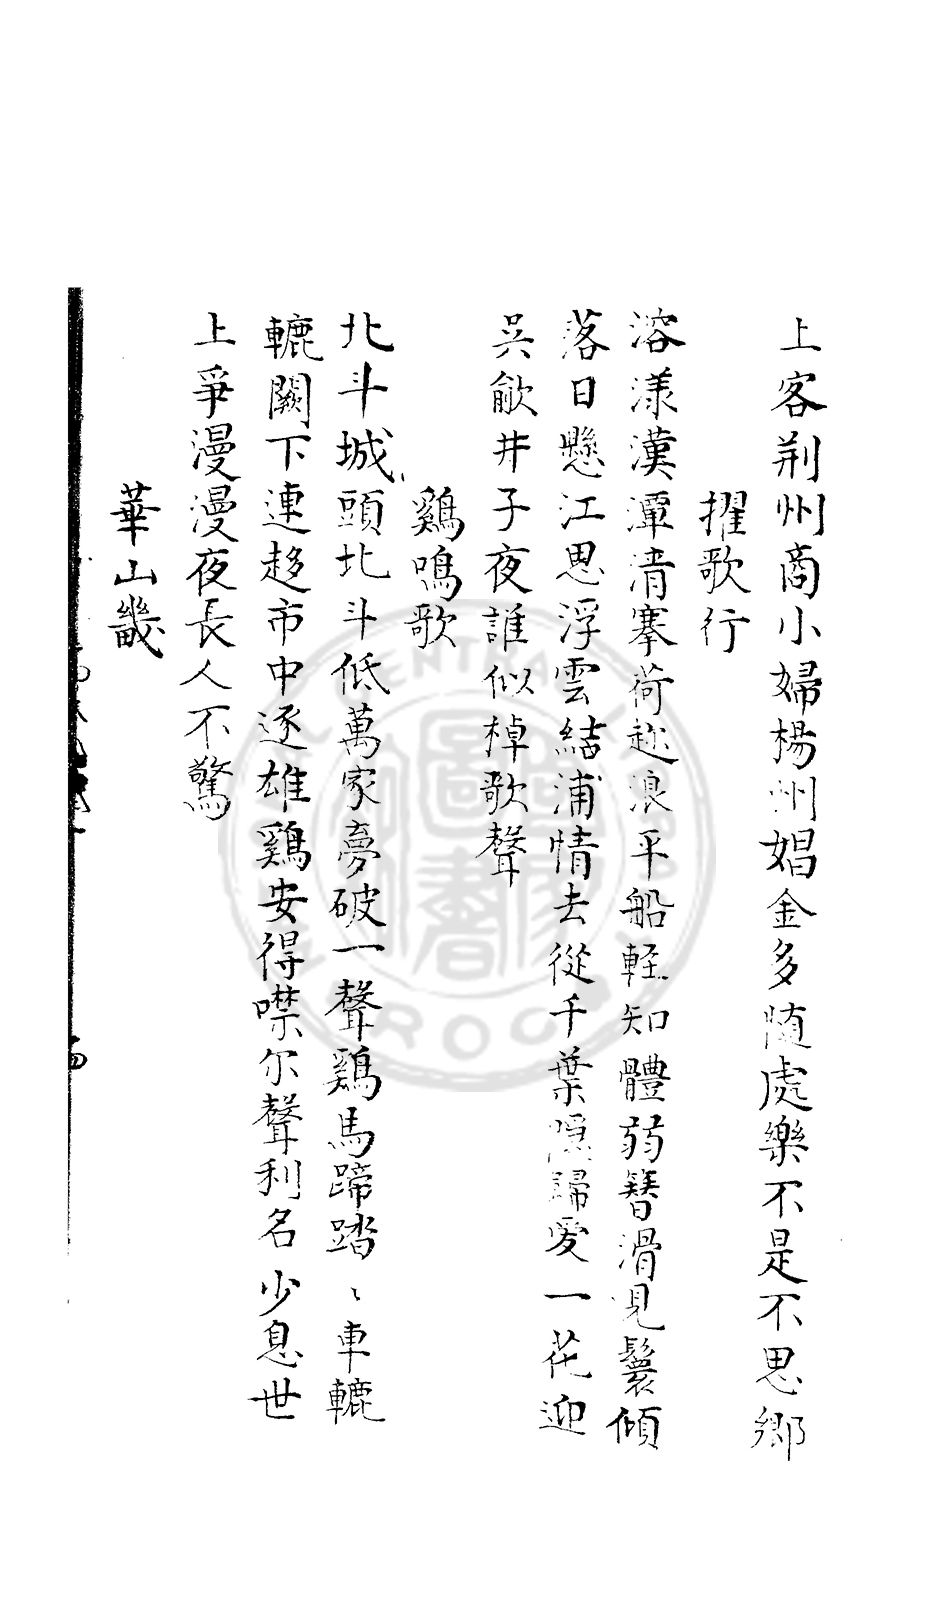 上客荆州商小婦楊州娼金多随處樂不是不思鄉
擢歌行
溶漾漢潭清搴荷趂浪平船輕知體弱簪滑見鬟傾
落日懸江思浮雲結浦情去從千葉隠歸愛一花迎
吳歈井子夜誰似棹歌聲
鷄鳴歌
北斗城頭北斗低萬家夢破一聲鷄馬蹄踏〻車轆
轆闕下連趍市中逐雄鷄安得噤尔聲利名少息世
上爭漫漫夜長人不驚
華山畿
CENTRAL
R.O.C.
圖書